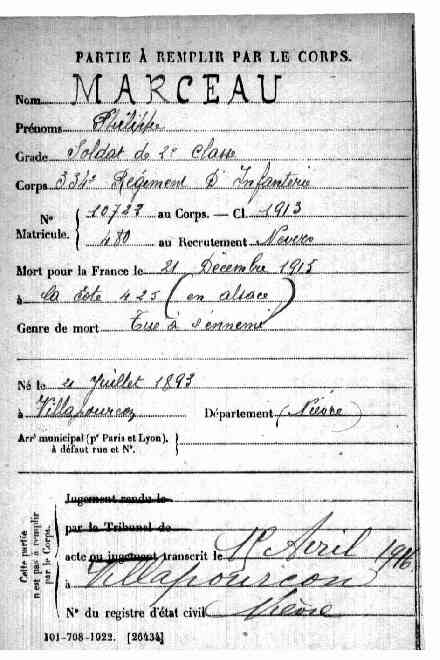 PARTIE À REMPLIR PAR LE CORPS.
Nom MARCEAU
Prénoms Philippe
Grade Soldat de 2e Classe
Corps 334e Régiment D'Infanterie
N° Matricule. { 10727 au Corps. — Cl. 1913
480 au Recrutement Nevers
Mort pour la France le 21 Décembre 1915
à la Cote 425 (en alsace)
Genre de mort Tué à l'ennemi
Né le 21 Juillet 1893
à Villapourçon Département (Nièvre)
Arrt municipal (pr Paris et Lyon), à défaut rue et N°. }
Cette partie n'est pas à remplir par le Corps.
Jugement rendu le
par le Tribunal de
acte ou jugement transcrit le Avril 1916
à Villapourçon
N° du registre d'état civil Nièvre
101-708-1922. [26434]